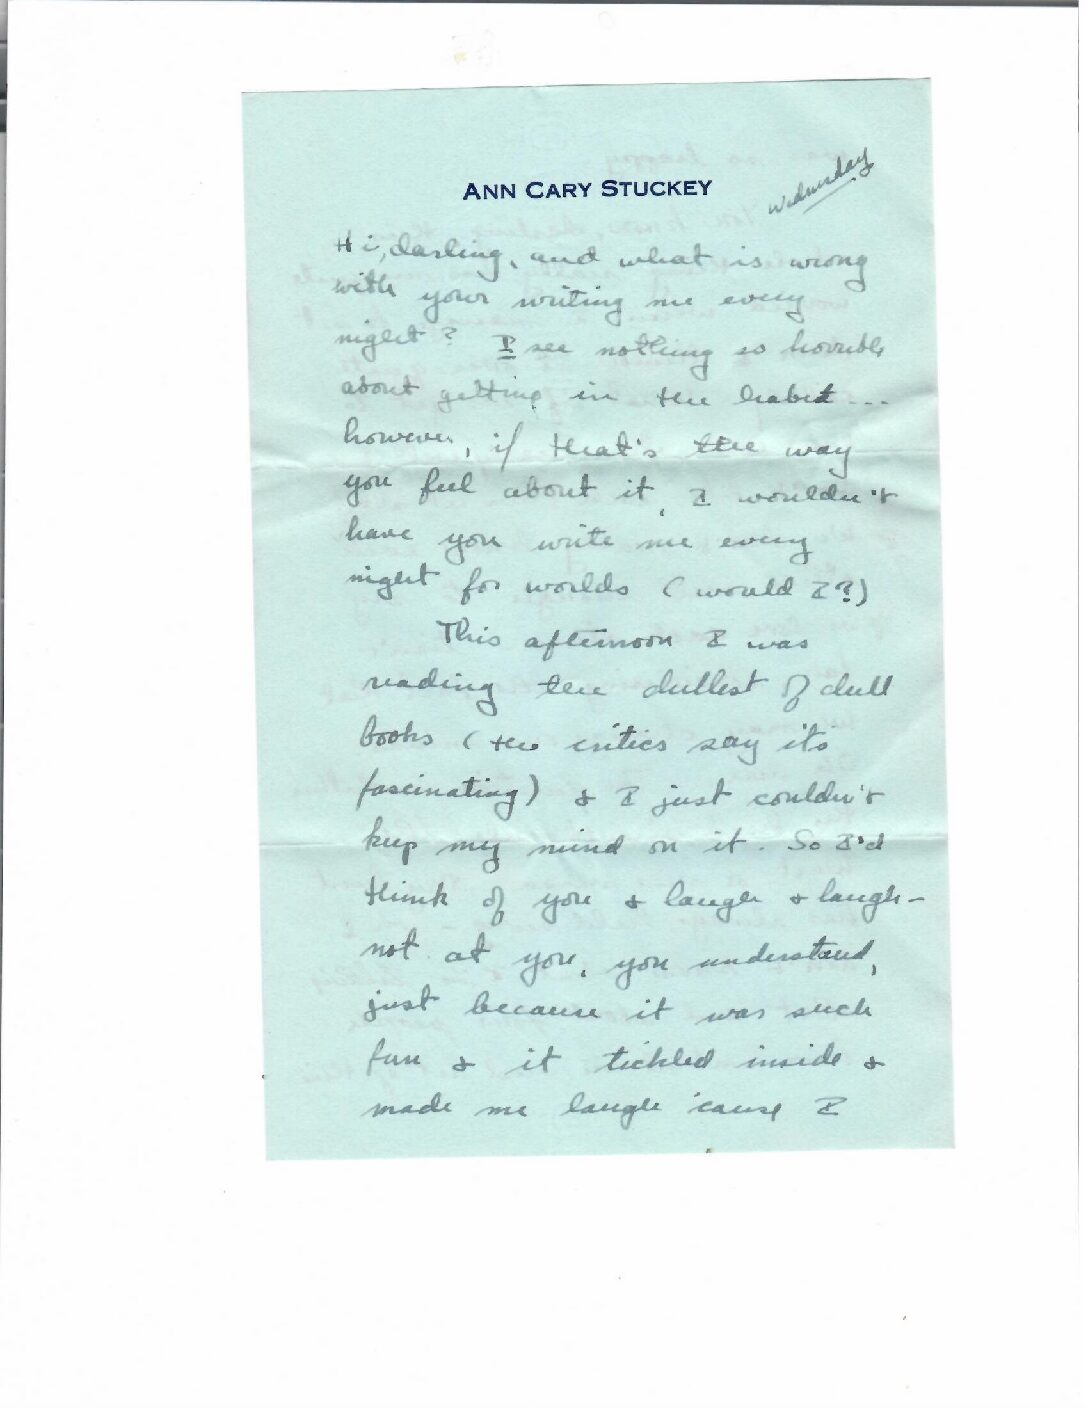 ANN CARY STUCKEY
Wednesday
Hi, darling, and what is wrong
with your writing me every
night? I see nothing so horrible
about getting in the habit ...
however, if that's the way
you feel about it, I wouldn't
have you write me every
night for worlds (would I?)
This afternoon I was
reading the dullest of dull
books (the critics say it's
fascinating) & I just couldn't
keep my mind on it. So I'd
think of you & laugh & laugh -
not at you, you understand,
just because it was such
fun & it tickled inside &
made me laugh 'cause I